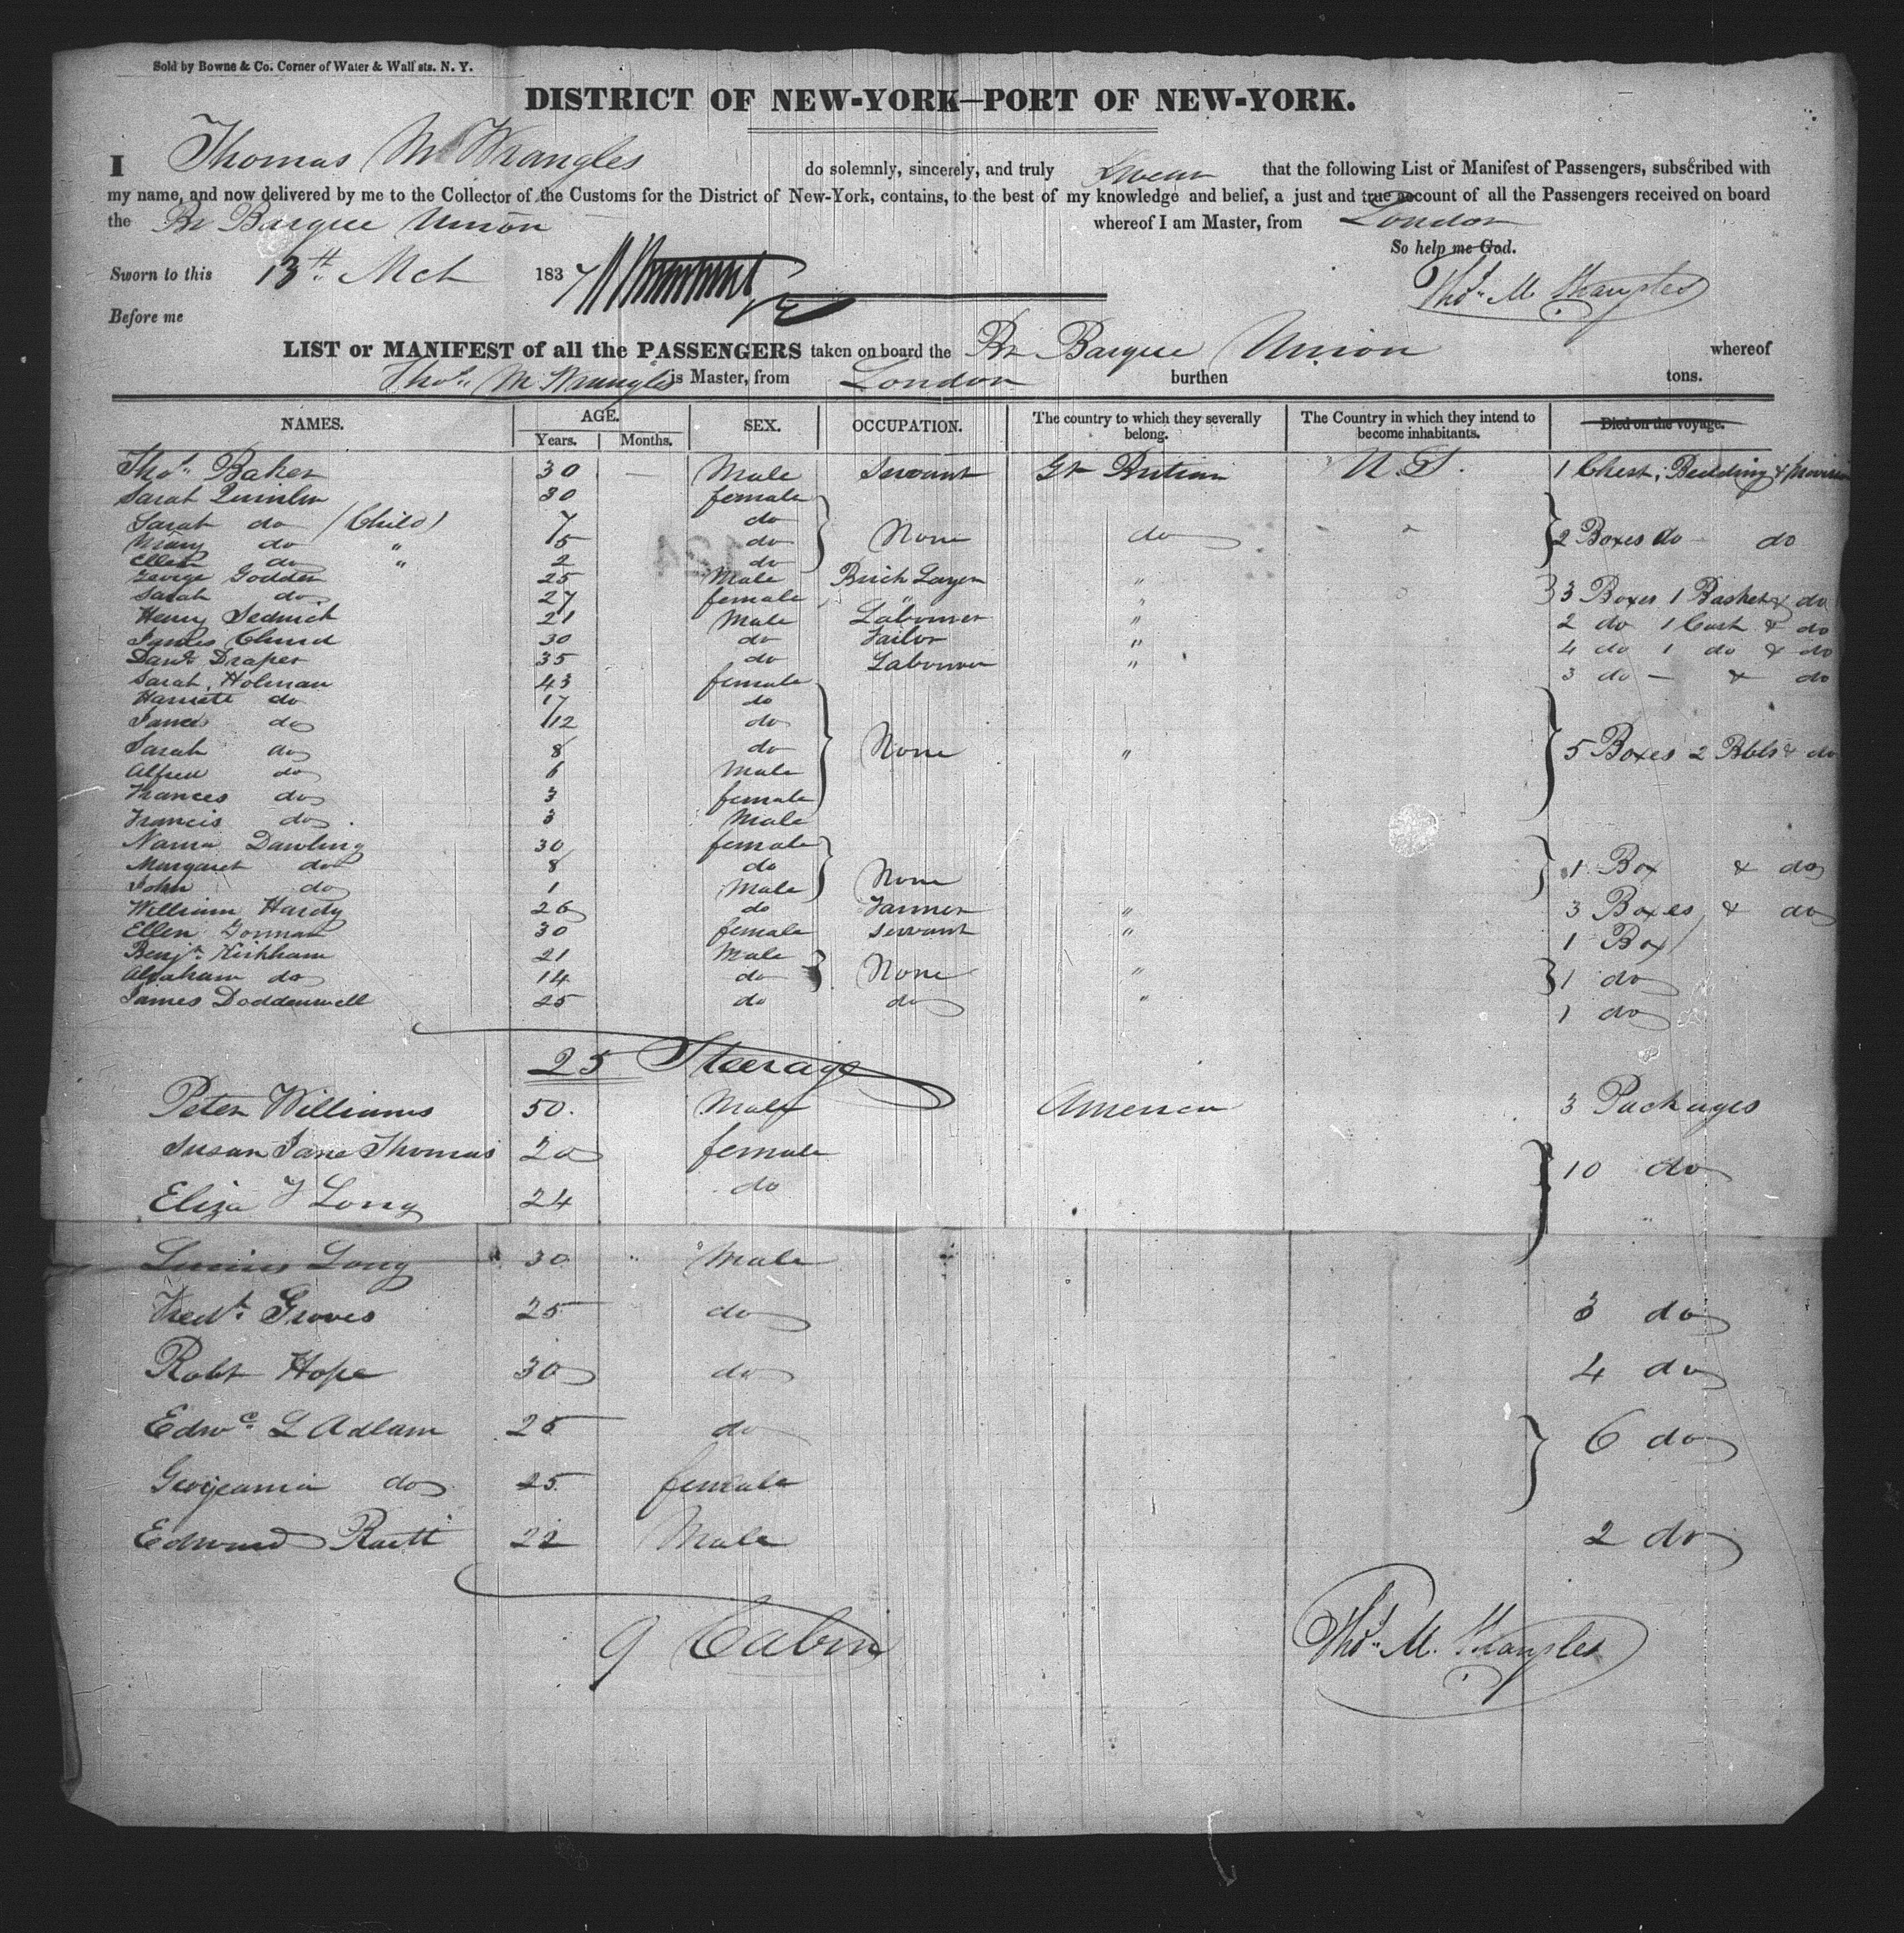 Sold by Bowne & Co. Corner of Water & Wall sts. N. Y.
DISTRICT OF NEW-YORK—PORT OF NEW-YORK.
I Thomas M Wrangles do solemnly, sincerely, and truly Swear that the following List or Manifest of Passengers, subscribed with
my name, and now delivered by me to the Collector of the Customs for the District of New-York, contains, to the best of my knowledge and belief, a just and true account of all the Passengers received on board
the Br Barque Union whereof I am Master, from London
So help me God.
Sworn to this 13th Mch 1837
Thos M. Wrangles
Before me
LIST or MANIFEST of all the PASSENGERS taken on board the Br Barque Union whereof
Thos M Wrangles is Master, from London burthen tons.
NAMES. AGE. SEX. OCCUPATION. The country to which they severally belong. The Country in which they intend to become inhabitants. Died on the voyage.
Years. Months.
Thos Baker 30 — Male Servant Gt Britian U S. 1 Chest, Bedding & provision
Sarah 30 female
Sarah do (Child) 7 do
Mary do " 5 do None do 2 Boxes do do
Ellen do " 2 do
George Godden 25 Male Brick Layer "
Sarah do 27 female " " 3 Boxes 1 Basket & do
Henry Sedwick 21 Male Labourer " 2 do 1 Cask & do
James 30 do Tailor " 4 do 1 do & do
Danl Draper 35 do Labourer " 3 do — & do
Sarah Holman 43 female
Harriett do 17 do
James do 12 do
Sarah do 8 do None " 5 Boxes 2 Bbls & do
Alfred do 6 Male
Frances do 3 female
Francis do 3 Male
Dawling 30 female
Margaret do 8 do None 1 Box & do
John do 1 Male
William Hardy 26 do Farmer " 3 Boxes & do
Ellen Gorman 30 female Servant " 1 Box
Benjn Kirkham 21 Male None " 1 do
Abraham do 14 do
James Doddenwell 25 do do " 1 do
25 Steerage
Peter Williams 50. Male America 3 Packages
Susan Jane Thomas 20 female 10 do
Eliza Y Long 24 do
Long 30 Male
Fredk Groves 25 do 3 do
Robt Hope 30 do 4 do
Edwd L Adlam 25 do 6 do
Georjeania do 25 female
Edward 22 Male 2 do
9 Cabin
Thos M. Wrangles